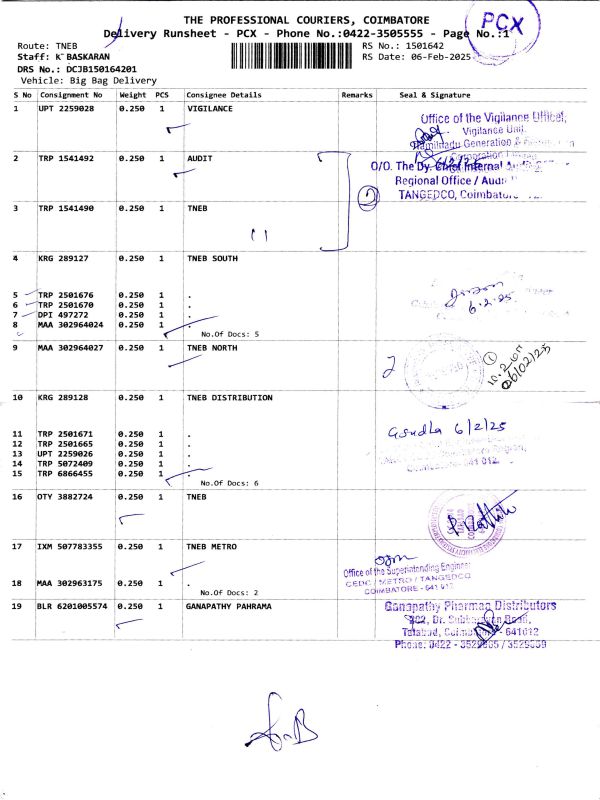 THE PROFESSIONAL COURIERS, COIMBATORE
PCX
Delivery Runsheet - PCX - Phone No.:0422-3505555 - Page No.:1
Route: TNEB
RS No.: 1501642
Staff: K BASKARAN
RS Date: 06-Feb-2025
DRS No.: DCJB150164201
Vehicle: Big Bag Delivery
S No Consignment No Weight PCS Consignee Details Remarks Seal & Signature
1 UPT 2259028 0.250 1 VIGILANCE
Office of the Vigilance Officer,
Vigilance Unit
Tamilnadu Generation &
2 TRP 1541492 0.250 1 AUDIT
O/O. The Dy. Chief Internal
Regional Office / Audit
TANGEDCO, Coimbatore
2
3 TRP 1541490 0.250 1 TNEB
4 KRG 289127 0.250 1 TNEB SOUTH
5 TRP 2501676 0.250 1 .
6 TRP 2501670 0.250 1 .
7 DPI 497272 0.250 1 .
8 MAA 302964024 0.250 1 .
No.Of Docs: 5
6.2.25
9 MAA 302964027 0.250 1 TNEB NORTH
2
1
06/02/25
10 KRG 289128 0.250 1 TNEB DISTRIBUTION
11 TRP 2501671 0.250 1 .
12 TRP 2501665 0.250 1 .
13 UPT 2259026 0.250 1 .
14 TRP 5072409 0.250 1 .
15 TRP 6866455 0.250 1 .
No.Of Docs: 6
6/2/25
16 OTY 3882724 0.250 1 TNEB
17 IXM 507783355 0.250 1 TNEB METRO
18 MAA 302963175 0.250 1 .
No.Of Docs: 2
Office of the Superintending Engineer
CEDC / METRO / TANGEDCO
COIMBATORE - 641 012
19 BLR 6201005574 0.250 1 GANAPATHY PAHRAMA
Ganapathy Pharmaa Distributors
Tatabad, Coimbatore - 641012